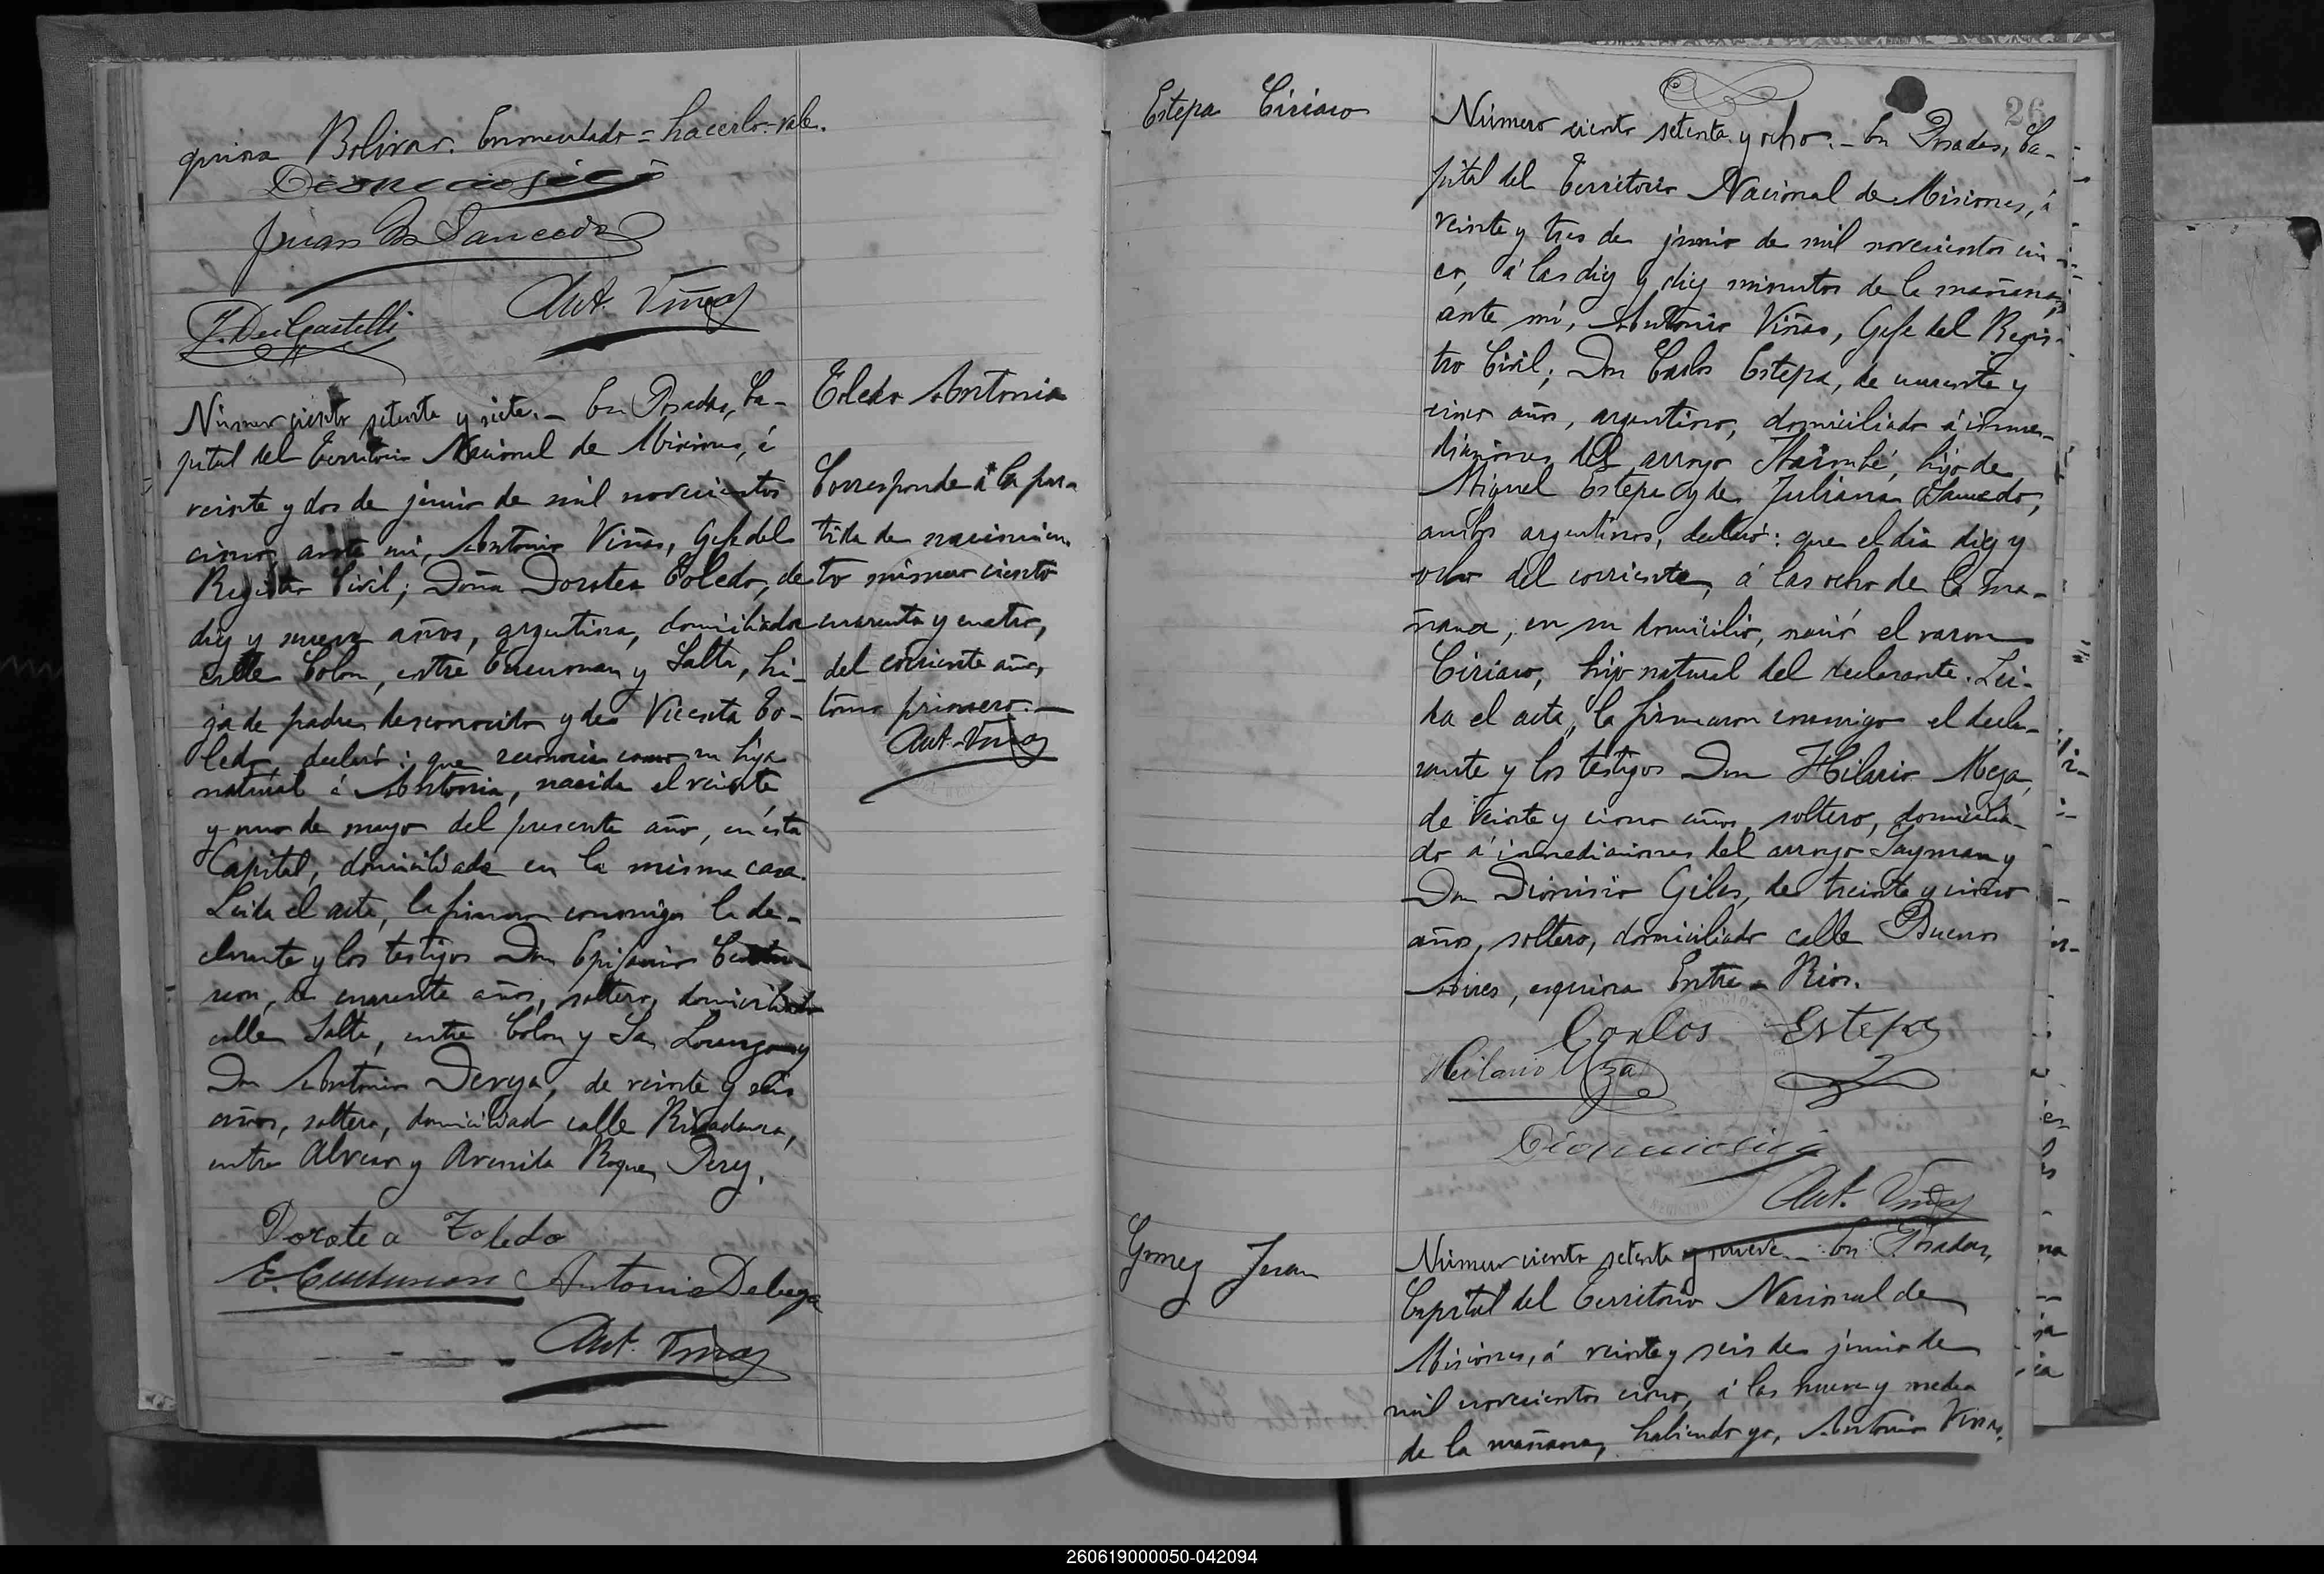 quina Bolivar. Enmendado = hacerlo = vale.
Juan B. Saucedo
Ant. Viñas
Número ciento setenta y siete. _ En Posadas, Ca-
pital del Territorio Nacional de Misiones, á
veinte y dos de junio de mil novecientos
cinco, ante mi, Antonio Viñas, Gefe del
Registro Civil; Doña Dorotea Toledo, de
diez y nueve años, argentina, domiciliada
calle Colon, entre Tucuman y Salta, hi-
ja de padre desconocido y de Vicenta To-
ledo, declaró: que reconocia como su hija
natural á Antonia, nacida el veinte
y uno de mayo del presente año, en ésta
Capital, domiciliada en la misma casa.
Leida el acta, la firmaron conmigo la de-
clarante y los testigos Don Epifanio
de cuarenta años, soltero, domiciliado
calle Salta, entre Colon y San Lorenzo y
Don Antonio de veinte y seis
años, soltero, domiciliado calle Rivadavia,
entre Alvear y Avenida Roque Perez.
Dorotea Toledo
Antonio
Ant. Viñas
Toledo Antonia
Corresponde á la par-
tida de nacimien-
to número ciento
cuarenta y cuatro,
del corriente año,
tomo primero. _
Ant. Viñas
26
Estepa Ciriaco
Número ciento setenta y ocho. _ En Posadas, Ca-
pital del Territorio Nacional de Misiones, á
veinte y tres de junio de mil novecientos cin-
co, á las diez y diez minutos de la mañana,
ante mí, Antonio Viñas, Gefe del Regis-
tro Civil; Don Carlos Estepa, de cuarenta y
cinco años, argentino, domiciliado á inme-
diaciones del arroyo Itaimbé, hijo de
Miguel Estepa y de Juliana Saucedo,
ambos argentinos, declaró: que el dia diez y
ocho del corriente, á las ocho de la ma-
ñana, en su domicilio, nació el varon
Ciriaco, hijo natural del declarante. Lei-
da el acta, la firmaron conmigo el decla-
rante y los testigos Don Hilario Meza,
de veinte y cinco años, soltero, domicilia-
do á inmediaciones del arroyo Zayman y
Don Dionisio Giles, de treinta y cinco
años, soltero, domiciliado calle Buenos
Aires, esquina Entre-Rios.
Carlos Estepa
Hilario Meza
Ant. Viñas
Gomez Juan
Número ciento setenta y nueve. _ En Posadas,
Capital del Territorio Nacional de
Misiones, á veinte y seis de junio de
mil novecientos cinco, á las nueve y media
de la mañana, habiendo yo, Antonio Viñas,
260619000050-042094